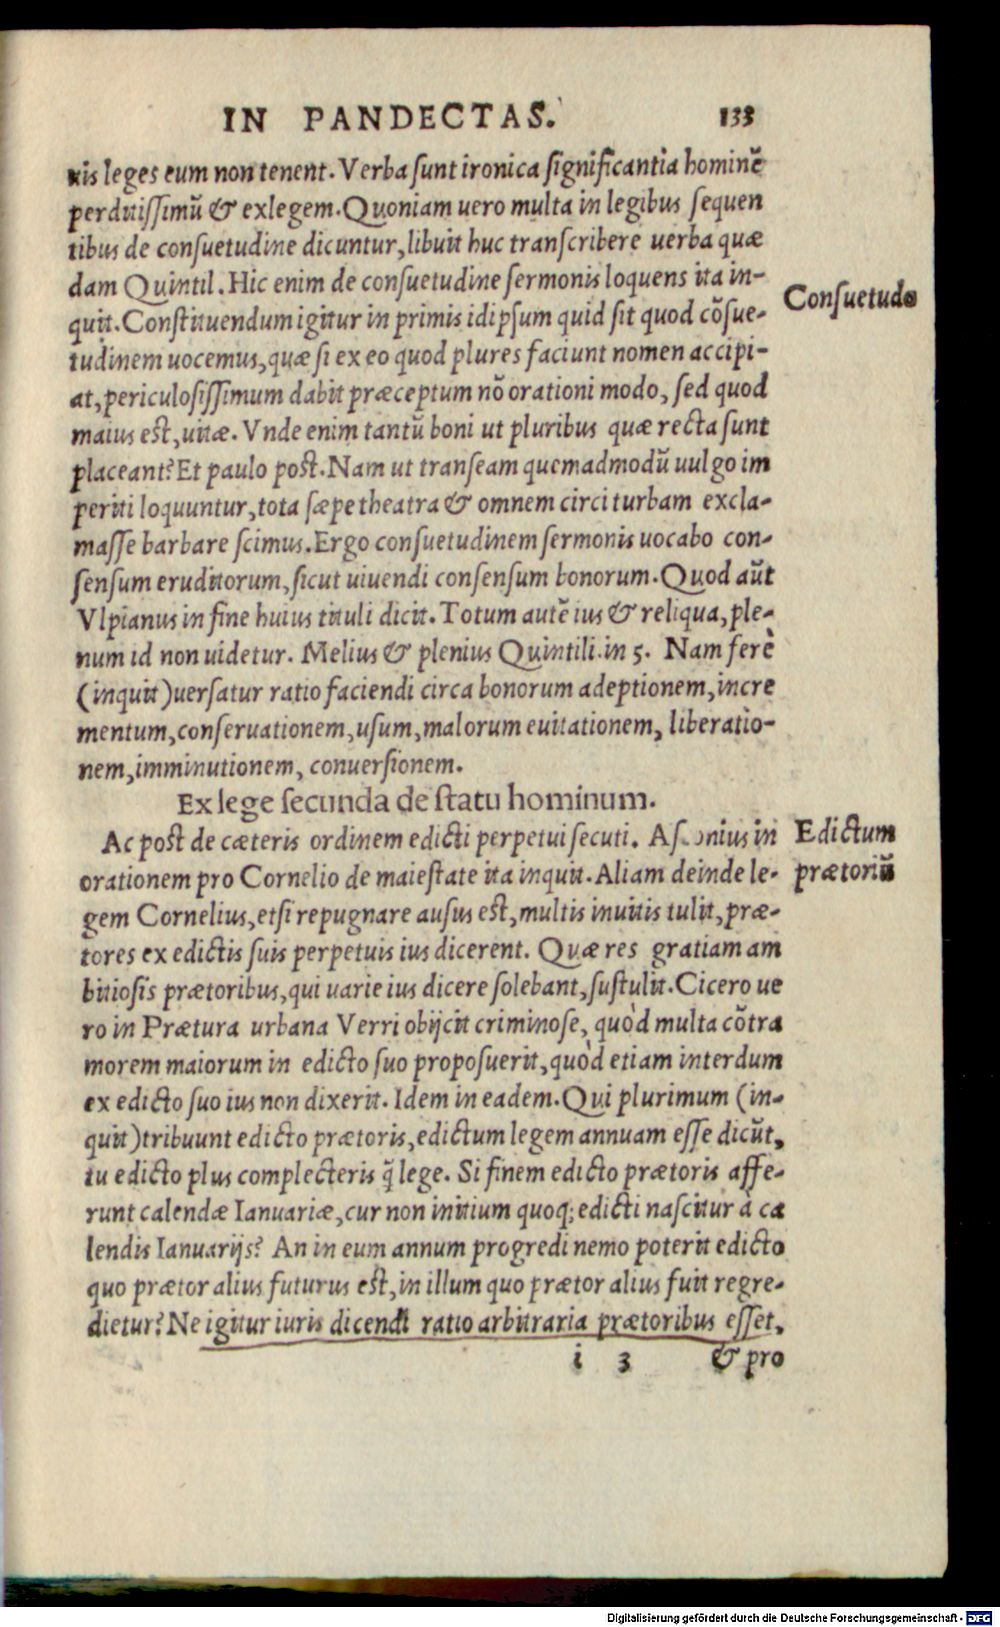 IN PANDECTAS. 133
uis leges eum non tenent. Verba sunt ironica significantia hominẽ
perditissimũ & exlegem. Quoniam uero multa in legibus sequen
tibus de consuetudine dicuntur, libuit huc transcribere uerba quæ
dam Quintil. Hic enim de consuetudine sermonis loquens ita in-
quit. Constituendum igitur in primis id ipsum quid sit quod cõsue-
Consuetudo
tudinem uocemus, quæ si ex eo quod plures faciunt nomen accipi-
at, periculosissimum dabit præceptum nõ orationi modo, sed quod
maius est, uitæ. Vnde enim tantũ boni ut pluribus quæ recta sunt
placeant? Et paulo post. Nam ut transeam quemadmodũ uulgo im
periti loquuntur, tota sæpe theatra & omnem circi turbam excla-
masse barbare scimus. Ergo consuetudinem sermonis uocabo con-
sensum eruditorum, sicut uiuendi consensum bonorum. Quod aũt
Vlpianus in fine huius tituli dicit. Totum autẽ ius & reliqua, ple-
num id non uidetur. Melius & plenius Quintili. in 5. Nam ferè
(inquit) uersatur ratio faciendi circa bonorum adeptionem, incre
mentum, conseruationem, usum, malorum euitationem, liberatio-
nem, imminutionem, conuersionem.
Ex lege secunda de statu hominum.
Ac post de cæteris ordinem edicti perpetui secuti. Asconius in
Edictum
orationem pro Cornelio de maiestate ita inquit. Aliam deinde le-
prætoriũ
gem Cornelius, etsi repugnare ausus est, multis inuitis tulit, præ-
tores ex edictis suis perpetuis ius dicerent. Quæ res gratiam am
bitiosis prætoribus, qui uarie ius dicere solebant, sustulit. Cicero ue
ro in Prætura urbana Verri obijcit criminose, quòd multa cõtra
morem maiorum in edicto suo proposuerit, quòd etiam interdum
ex edicto suo ius non dixerit. Idem in eadem. Qui plurimum (in-
quit) tribuunt edicto prætoris, edictum legem annuam esse dicũt,
tu edicto plus complecteris q̃ lege. Si finem edicto prætoris affe-
runt calendæ Ianuariæ, cur non initium quoq; edicti nascitur à ca
lendis Ianuarijs? An in eum annum progredi nemo poterit edicto
quo prætor alius futurus est, in illum quo prætor alius fuit regre-
dietur? Ne igitur iuris dicendi ratio arbitraria prætoribus esset,
i 3 & pro
Digitalisierung gefördert durch die Deutsche Forschungsgemeinschaft - DFG